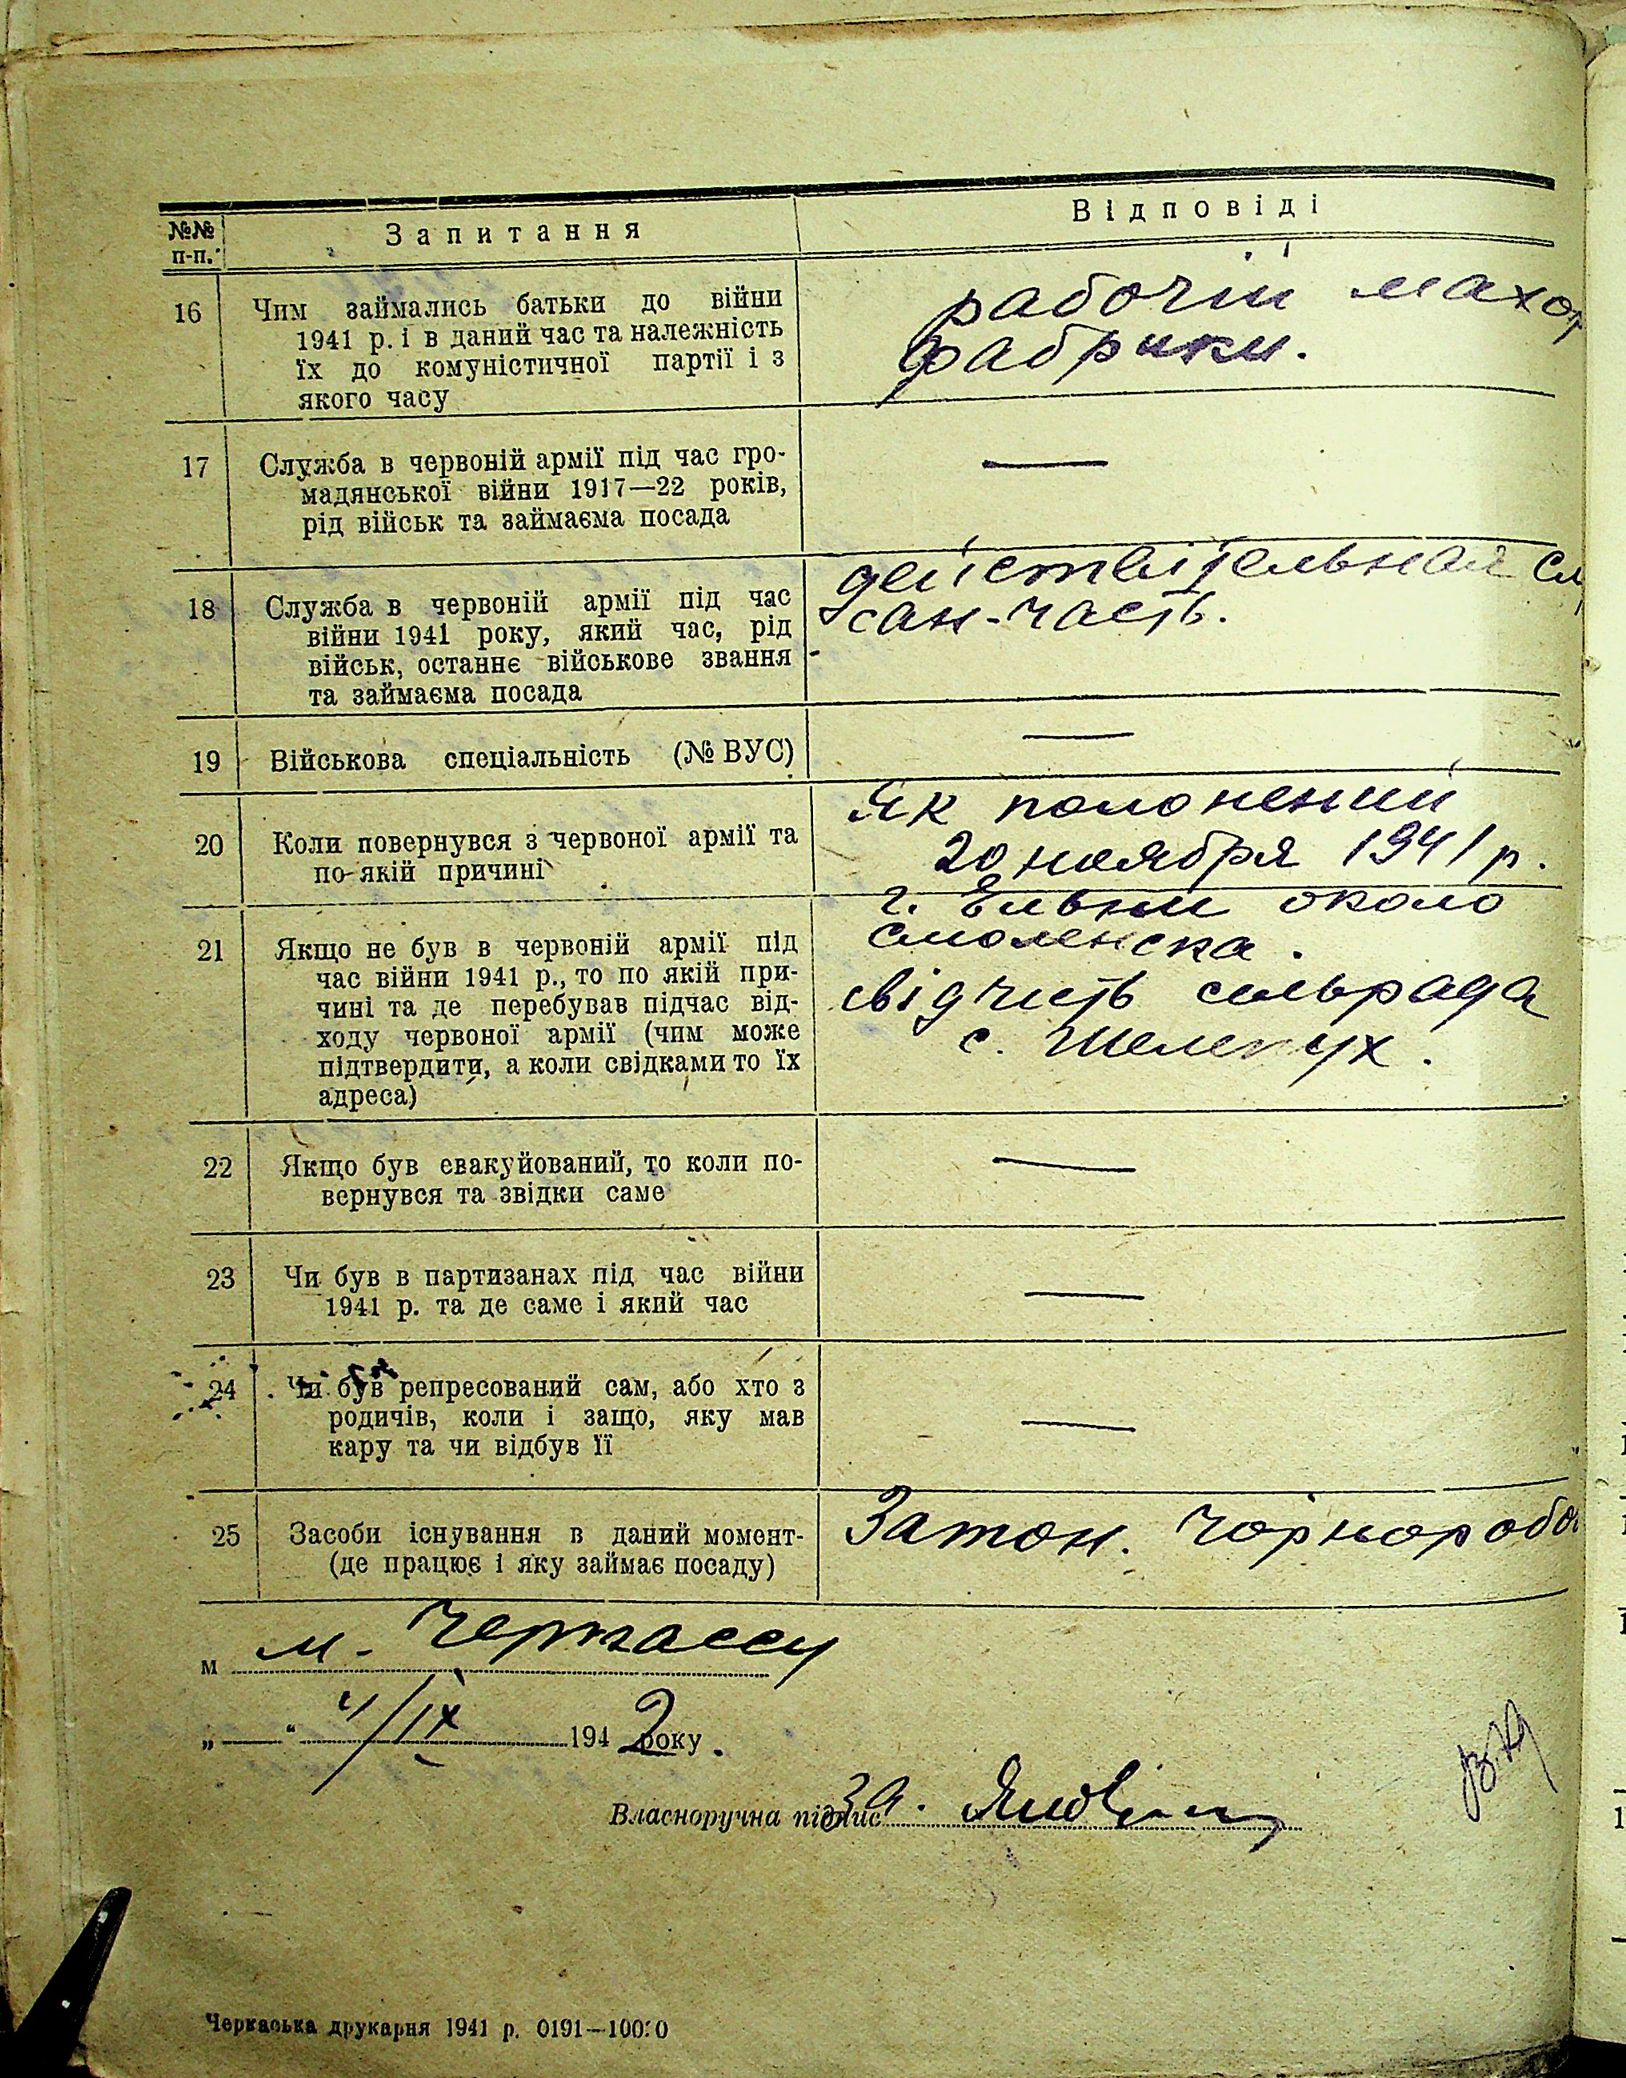 №№ п-п. Запитання Відповіді
16 Чим займались батьки до війни
1941 р. і в даний час та належність
їх до комуністичної партії і з
якого часу
рабочій махор
фабрики.
17 Служба в червоній армії під час гро-
мадянської війни 1917—22 років,
рід військ та займаєма посада
—
18 Служба в червоній армії під час
війни 1941 року, який час, рід
військ, останнє військове звання
та займаєма посада
действітельная сл
сан-часть.
19 Військова спеціальність (№ ВУС)
—
20 Коли повернувся з червоної армії та
по якій причині
Як полонений
20 ноября 1941 р.
21 Якщо не був в червоній армії під
час війни 1941 р., то по якій при-
чині та де перебував підчас від-
ходу червоної армії (чим може
підтвердити, а коли свідками то їх
адреса)
г. Ельни около
смоленска.
свідчить сельрада
с. Шелепух.
22 Якщо був евакуйований, то коли по-
вернувся та звідки саме
—
23 Чи був в партизанах під час війни
1941 р. та де саме і який час
—
24 Чи був репресований сам, або хто з
родичів, коли і защо, яку мав
кару та чи відбув її
—
25 Засоби існування в даний момент-
(де працює і яку займає посаду)
Затон. Чорноробо
м м. Черкассу
„—“ 4/IX 1942 року.
Власноручна підпис за.
Черкаська друкарня 1941 р. 0191—10000